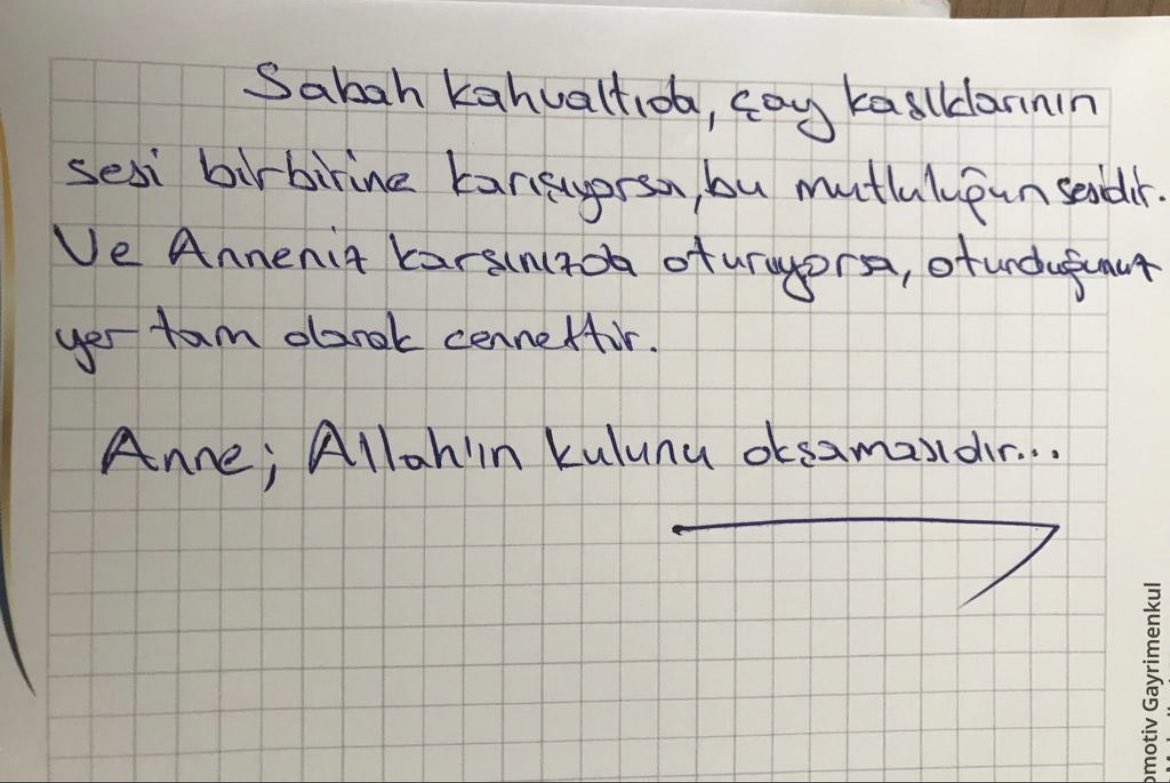 Sabah kahvaltıda, çay kaşıklarının
sesi birbirine karışıyorsa, bu mutluluğun sesidir.
Ve Anneniz karşınızda oturuyorsa, oturduğunuz
yer tam olarak cennettir.
Anne; Allah'ın kulunu okşamasıdır...
omotiv Gayrimenkul